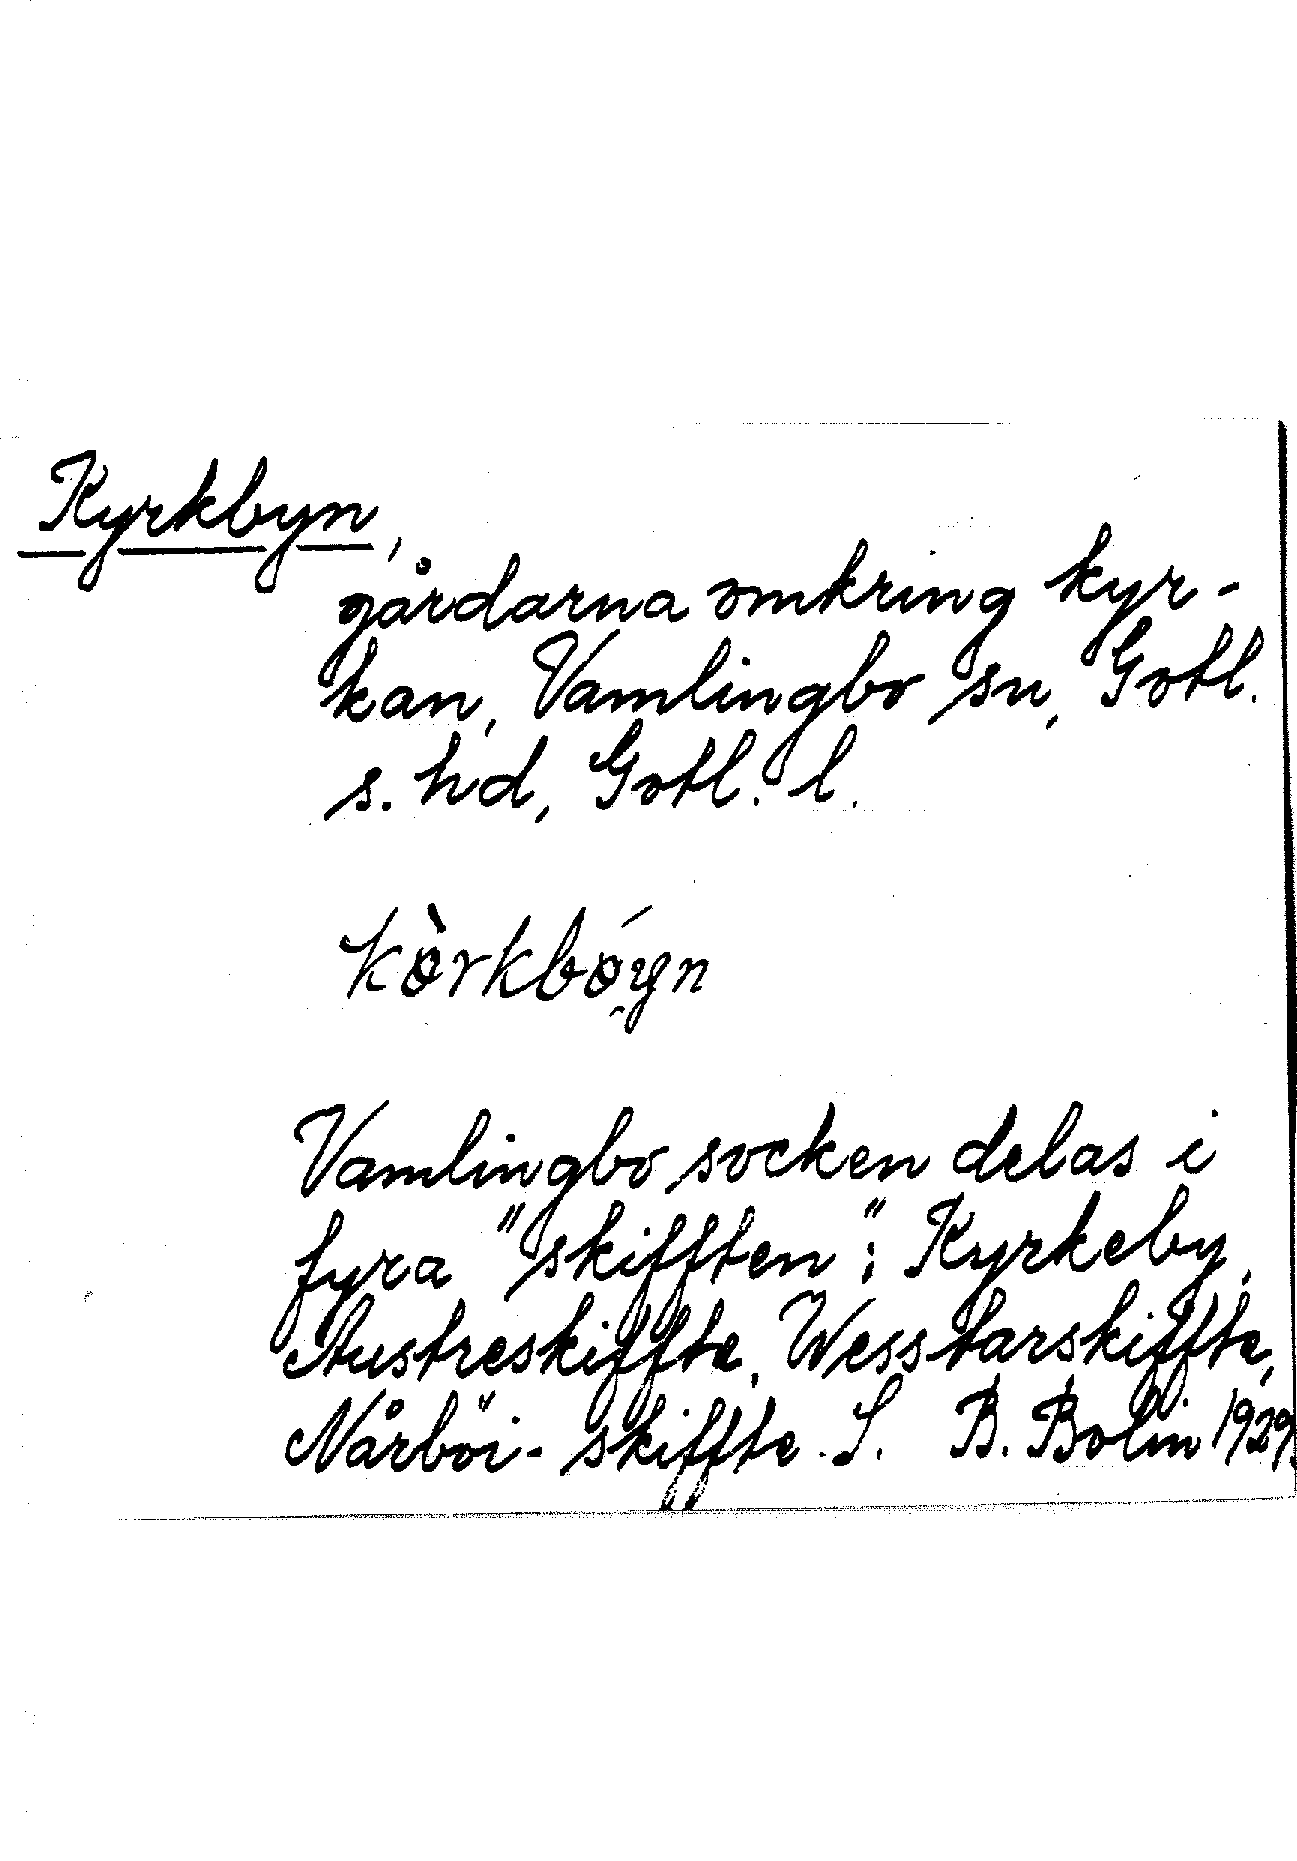 Kyrkbyn,
gårdarna omkring kyr-
kan, Vamlingbo sn, Gotl.
s. hd, Gotl. l.
kòrkbóyn
Vamlingbo socken delas i
fyra "skifften": Kyrkeby,
Austreskiffte, Wesstarskiffte,
Nårböi-skiffte. S. B. Bolin 1929.